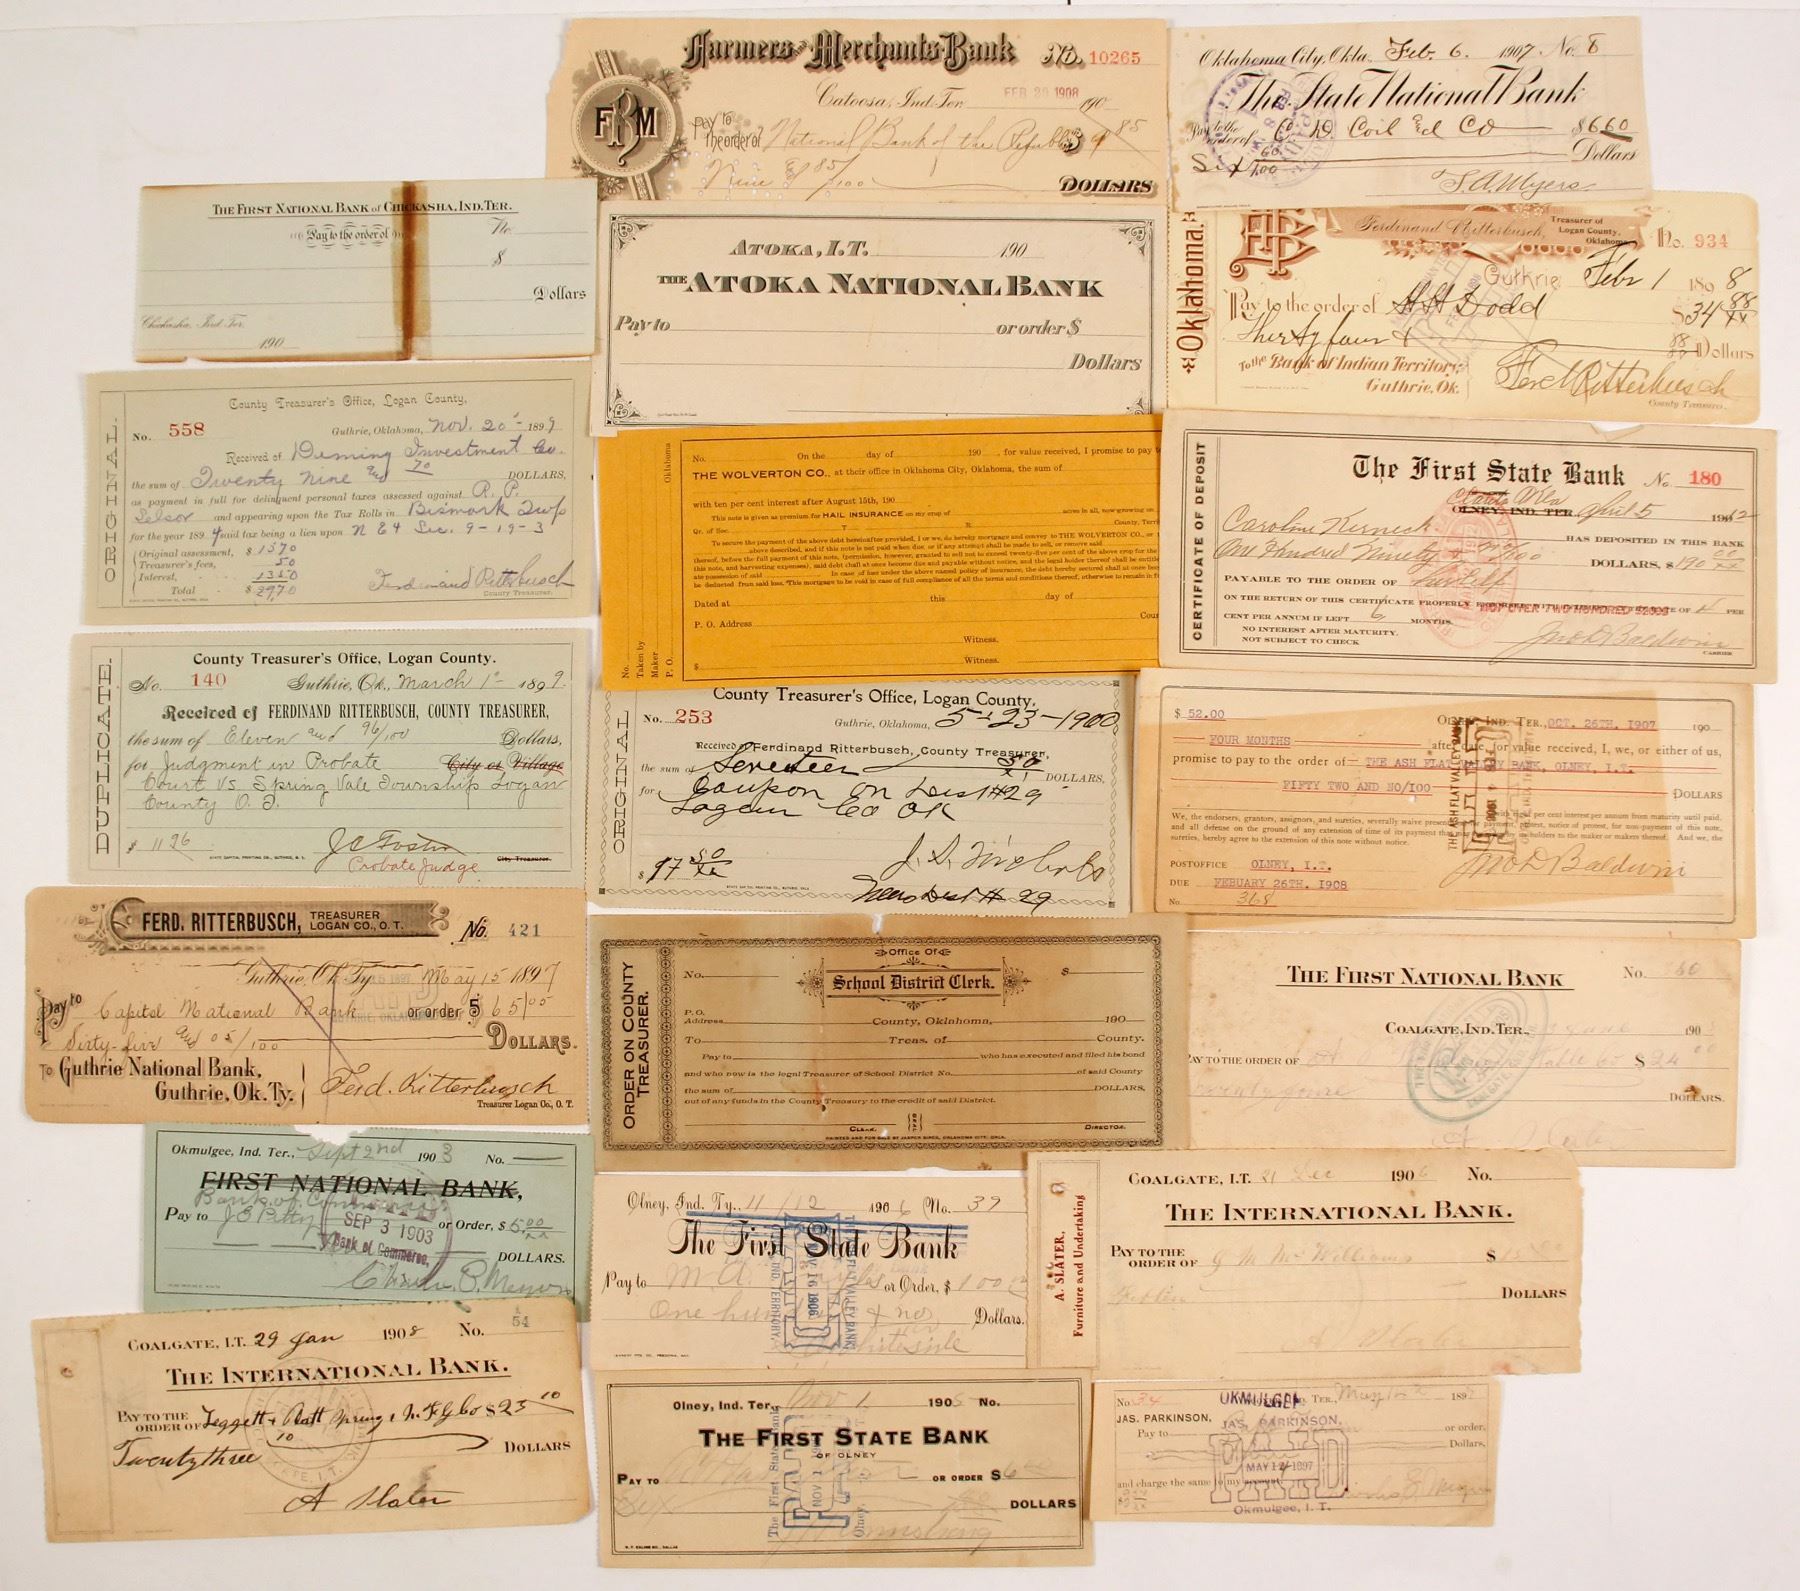 Farmers and Merchants Bank No. 10265
FBM
Catoosa, Ind. Ter. FEB 20 1908 190
Pay to the order of National Bank of the Republic $ 9 85
Nine & 85/100 DOLLARS
Oklahoma City, Okla. Feb. 6. 1907 No. 8
The State National Bank
Pay to the order of Coil & Co $6 60
Six 60/100 Dollars
T. A. Myers
THE FIRST NATIONAL BANK of CHICKASHA, IND. TER.
Pay to the order of No.
$
Dollars
Chickasha, Ind. Ter. 190
ATOKA, I.T. 190
THE ATOKA NATIONAL BANK
Pay to or order $
Dollars
Oklahoma.
Ferdinand Ritterbusch, Treasurer of Logan County, Oklahoma No. 934
Guthrie Feb 1 1898
Pay to the order of H H Dodd
$34 88/xx
Thirty four & 88/xx Dollars
To the Bank of Indian Territory, Guthrie, Ok.
Ferd Ritterbusch
County Treasurer.
ORIGINAL
County Treasurer's Office, Logan County.
No. 558 Guthrie, Oklahoma, Nov. 20 1899
Received of Deming Investment Co.
the sum of Twenty Nine and 70 DOLLARS,
as payment in full for delinquent personal taxes assessed against R. P.
Selsor and appearing upon the Tax Rolls in Bismark Twp
for the year 1894 said tax being a lien upon N E 4 Sec. 9-19-3
Original assessment, $ 1570
Treasurer's fees, 50
Interest, 1350
Total $ 2970
Ferdinand Ritterbusch
County Treasurer.
No. On the day of 190 , for value received, I promise to pay t
THE WOLVERTON CO., at their office in Oklahoma City, Oklahoma, the sum of
with ten per cent interest after August 15th, 190
This note is given as premium for HAIL INSURANCE on my crop of acres in all, now growing on
Qr. of Sec. T R County, Terri
To secure the payment of above debt hereinafter provided, I or we, do hereby mortgage and convey to THE WOLVERTON CO., or
Dated at this day of
P. O. Address Cou
Witness.
$ Witness.
No. Taken by Maker P. O. Oklahoma
CERTIFICATE OF DEPOSIT
The First State Bank No. 180
OLNEY, IND. TER. April 5 1912
Caroline Kerneck HAS DEPOSITED IN THIS BANK
One Hundred Ninety & 00/100 DOLLARS, $190 00/xx
PAYABLE TO THE ORDER OF Herself
ON THE RETURN OF THIS CERTIFICATE PROPERLY ENDORSED WITH INTEREST AT THE RATE OF 4 PER
CENT PER ANNUM IF LEFT 6 MONTHS.
NO INTEREST AFTER MATURITY.
NOT SUBJECT TO CHECK
Jno D Baldwin
CASHIER
DUPLICATE
County Treasurer's Office, Logan County.
No. 140 Guthrie, Ok., March 1 1899.
Received of FERDINAND RITTERBUSCH, COUNTY TREASURER,
the sum of Eleven and 96/100 Dollars,
for Judgment in Probate City or Village
Court vs. Spring Vale Township Logan
County O. T.
$ 11 96
J C Foster
Probate Judge City Treasurer.
ORIGINAL
County Treasurer's Office, Logan County.
No. 253 Guthrie, Oklahoma, 5-23-1900
Received of Ferdinand Ritterbusch, County Treasurer,
the sum of Seventeen 50/xx DOLLARS,
for Coupon on Dist #29
Logan Co OK
$17 50/xx
J. S. Nichols
Treas Dist # 29
$ 52.00 OLNEY, IND. TER., OCT. 26TH. 1907 190
FOUR MONTHS after date, for value received, I, we, or either of us,
promise to pay to the order of THE ASH FLAT VALLEY BANK, OLNEY, I.T.
FIFTY TWO AND NO/100 DOLLARS
We, the endorsers, grantors, assignors, and sureties, severally waive
and all defense on the ground of any extension of time of its payment
sureties, hereby agree to the extension of this note without notice.
POSTOFFICE OLNEY, I.T.
DUE FEBUARY 26TH. 1908
No. 368
Jno D Baldwin
FERD. RITTERBUSCH, TREASURER LOGAN CO., O. T. No. 421
Guthrie, Ok. Ty. May 15 1897
Pay to Capitol National Bank or order $ 65/05
Sixty-five and 05/100 DOLLARS.
To Guthrie National Bank,
Guthrie, Ok. Ty.
Ferd. Ritterbusch
Treasurer Logan Co., O. T.
ORDER ON COUNTY TREASURER.
Office Of
No. School District Clerk. $
P. O. Address County, Oklahoma, 190
To Treas. of County.
Pay to who has executed and filed his bond
and who now is the legal Treasurer of School District No. of said County
the sum of DOLLARS,
out of any funds in the County Treasury to the credit of said District.
CLERK. DIRECTOR.
PRINTED AND FOR SALE BY JASPER SIPES, OKLAHOMA CITY, OKLA.
THE FIRST NATIONAL BANK No.
COALGATE, IND. TER., 190
PAY TO THE ORDER OF $ 24 00
DOLLARS.
Okmulgee, Ind. Ter., Sept 2nd 1903 No.
FIRST NATIONAL BANK,
Bank of Commerce
Pay to J E Petty or Order, $ 5.00/xx
SEP 3 1903
Bank of Commerce,
DOLLARS.
Olney, Ind. Ty., 11/12 1906 No. 39
The First State Bank
Pay to M. A. or Order, $ 100
One hundred & no Dollars.
Whiteside
A. SLATER,
Furniture and Undertaking
COALGATE, I.T. 21 Dec 1906 No.
THE INTERNATIONAL BANK.
PAY TO THE ORDER OF G M McWilliams $ 15
Fifteen DOLLARS
A Slater
COALGATE, I.T. 29 Jan 1908 No. 54
THE INTERNATIONAL BANK.
PAY TO THE ORDER OF Leggett & Platt Spring & M F G Co $23 10
Twenty three 10 DOLLARS
A Slater
Olney, Ind. Ter. Nov 1 1905 No.
THE FIRST STATE BANK
OF OLNEY
PAY TO OR ORDER $6
Six DOLLARS
Armstrong
No. 34 OKMULGEE TER., May 12 1897
JAS. PARKINSON, JAS. PARKINSON,
Pay to or order.
Dollars,
PAID
MAY 12 1897
and charge the same to my account
Okmulgee, I. T.